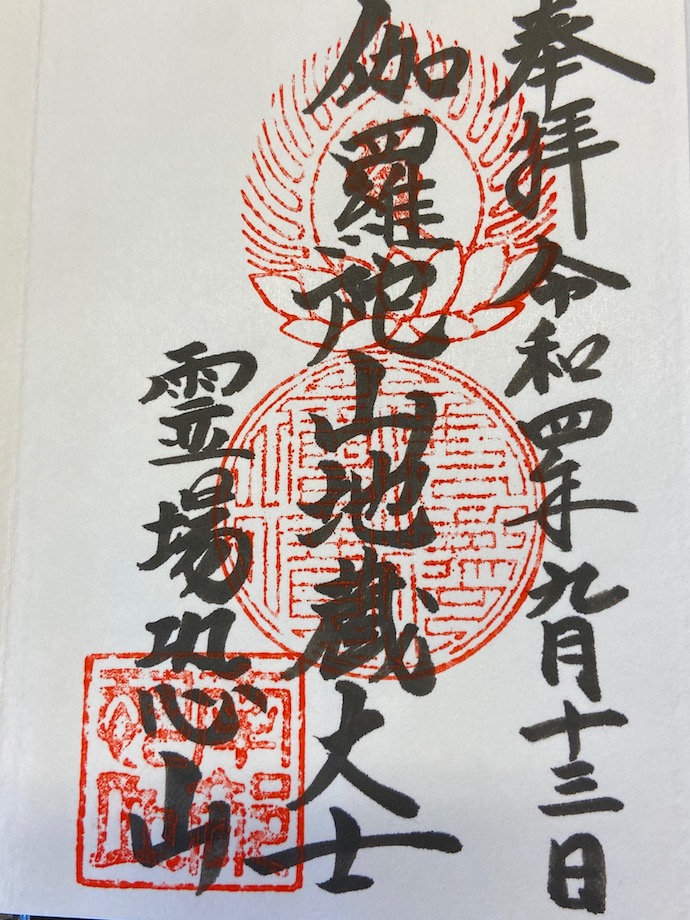 奉拝 令和四年九月十三日
伽羅陀山地蔵大士
霊場恐山